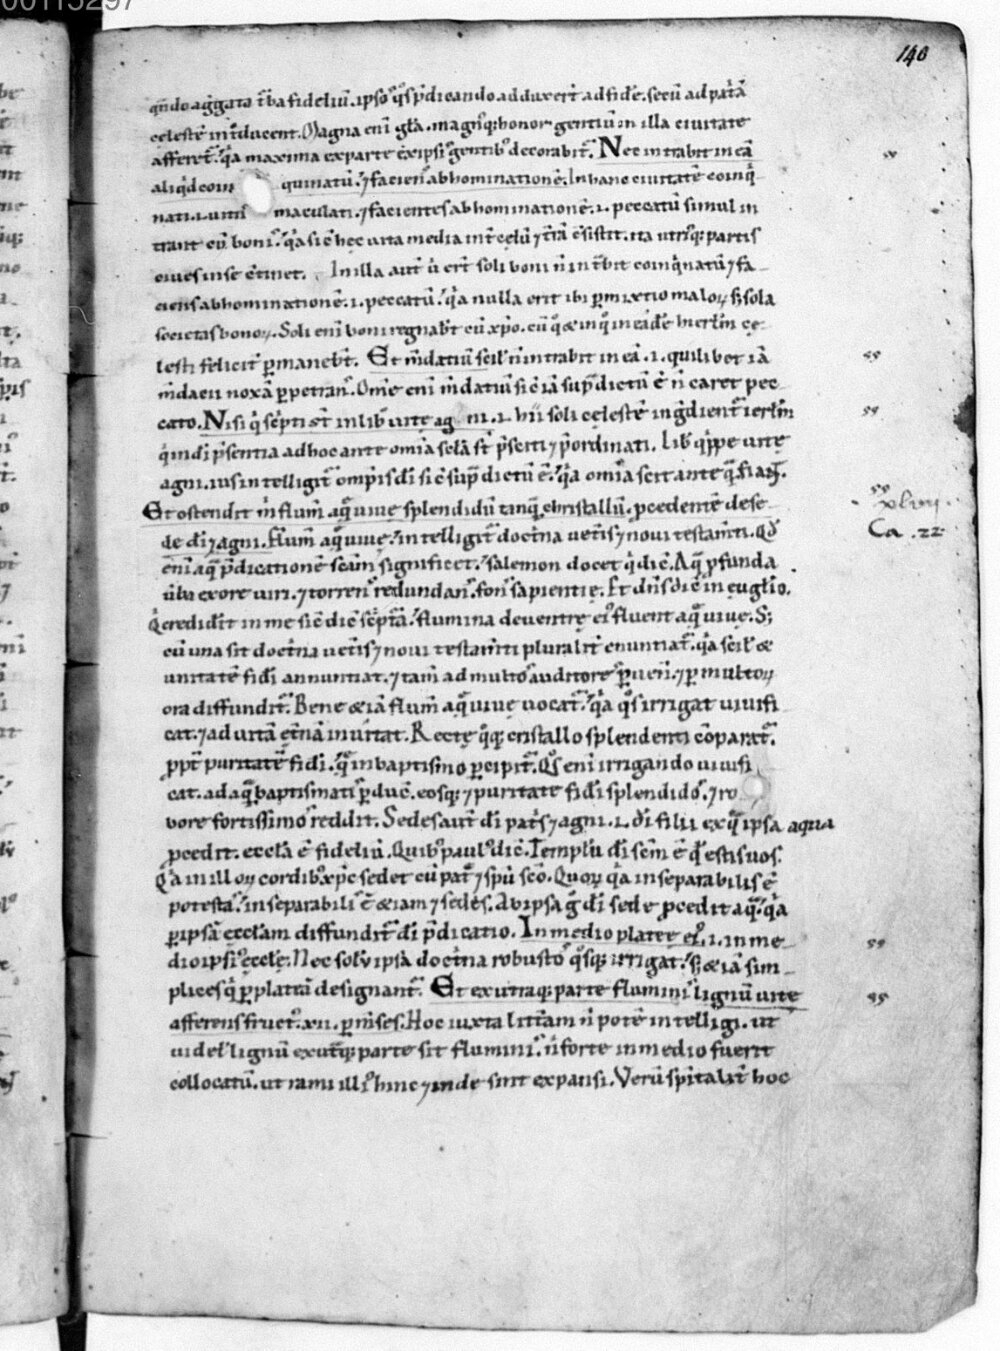 00115297
140
qn̄do aggata t̄ba fideliū. ipsoꝰ qͦs p̄dicando adduxer̄t ad fidē. secū ad pat'ā
celestē int̄ducent. Magna eni gl̄a. magnꝰq; honor gentiū in illa ciuitate
afferet̄. qͥa maxima ex parte ex ipsiꝰ gentibꝰ decorabit̄. Nec intrabit in eā
aliqͥd coin quinatū. ⁊ faciens abhominationē. In hanc ciuitatē coinqͥ
nati. i. uitiis maculati. ⁊ facientes abhominationē. i. peccatū simul in
trant cū bonis. qͥa sic̄ hec uita media int̄ celū ⁊ t̄rā c̄sistit. ita utriusq; partis
ciues in se c̄tinet. In illa aut̄ u᷒ er̄t soli boni n̄ int̄bit coinqͥnatū ⁊ fa
ciens abhominationē. i. peccatū. qͥa nulla erit ibi p̄mixtio malorꝝ s; sola
societas bonorꝝ. Soli eni boni regnabt̄ cū xp̄o. cū qͦ & in qͦ in eadē hierlm̄ ce
lesti felicit̄ p̄manebt̄. Et m̄datiū scil' n̄ intrabit in eā. i. quilibet iā
m̄dacii noxā ꝑpetrans. Om̄e eni m̄datiū sic̄ iā sup̄dictū ē n̄ caret pec
cato. Nisi qͥ sc̄pti st̄ in lib̄ uitę ag ni. i. hii soli celestē ingͥdient̄ ierl̄m
qͥ in di p̄sentia ad hoc ante om̄ia sc̄la st̄ p̄sc̄ti ⁊ p̄ordinati. Lib̄ qͥppe uitę
agni. ius intelligit̄ omp̄is di sic̄ sup̄ dictū ē. qͥa om̄ia scit ante qͣ fiant.
Et ostendit m̄ flum̄ aqͣ uiue splendidū tanqͣ christallū. ꝓcedentē de se
de di ⁊ agni. Flum̄ aqͣ uiue. intelligit̄ doct̄na uet̄is ⁊ noui testam̄ti. Qd̄
eni aqͣ p̄dicationē sc̄am significet. salemon docet qͥ dic̄. Aqͣ ꝓfunda
ūba ex ore uiri. ⁊ torrens redundans. fons sapientie. Et dn̄s dic̄ in euglīo.
Qͥ credidit in me sic̄ dic̄ sc̄ptā. flumina de uentre eiꝰ fluent aqͣ uiue. S;
cū una sit doct̄na uet̄is ⁊ noui testam̄ti pluralit̄ enuntiat̄. qͥa scil' &
unitatē fidi annuntiat. ⁊ tam̄ ad multoꝝ auditores ꝑuen̄. ⁊ ꝑ multorꝝ
ora diffundit̄. Bene & iā flum̄ aqͣ uiue uocat̄. qͥa qͦs irrigat uiuifi
cat. ⁊ ad uitā et̄nā inuitat. Recte qͦq; cristallo splendenti cōparat̄.
ꝓpt̄ puritatē fidi. qͣ in baptismo ꝑcipit̄. Qͦs eni irrigando uiuifi
cat. ad aqͣ baptismatis ꝑduc̄. eosq; ⁊ puritate fidi splendidos. ⁊ ro
bore fortissimos reddit. Sedes aut̄ di pat̄s ⁊ agni. i. di filii ex qͣ ipsa aqua
ꝓcedit. eccl̄a ē fideliū. Quibꝰ paulꝰ dic̄. Templū di sc̄m ē qd̄ estis uos.
Qͥa in illorꝝ cordibꝰ xp̄c sedet cū pat̄ ⁊ sp̄u sc̄o. Quorꝝ qͥa inseparabilis ē
potestas. inseparabilis ē & iam ⁊ sedes. Ab ipsa gͦ di sede ꝓcedit aqͣ. qͥa
ꝑ ipsā eccl̄am diffundit̄ di p̄dicatio. In medio platee eiꝰ. i. in me
dio ipsiꝰ eccl̄e. Nec solū ipsa doct̄na robustos qͦsq; irrigat. s; & iā sim
plices qͥ ꝑ plateā designant̄. Et ex utraq; parte fluminis lignū uitę
afferens fructꝰ. xii. ꝑ m̄ses. Hoc iuxta litt̄am n̄ potest intelligi. ut
uidel' lignū ex ut̄q; parte sit fluminis. n̄ forte in medio fuerit
collocatū. ut rami illiꝰ hinc ⁊ inde sint expansi. Verū sp̄italit̄ hoc
xlvij.
Ca. 22